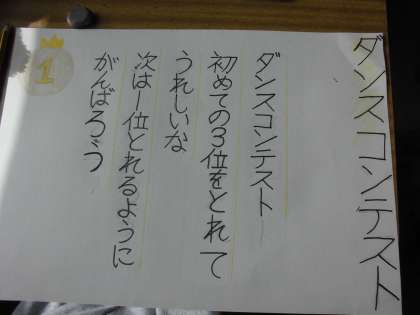 ダンスコンテスト
ダンスコンテスト
初めての3位をとれて
うれしいな
次は一位とれるように
がんばろう
1